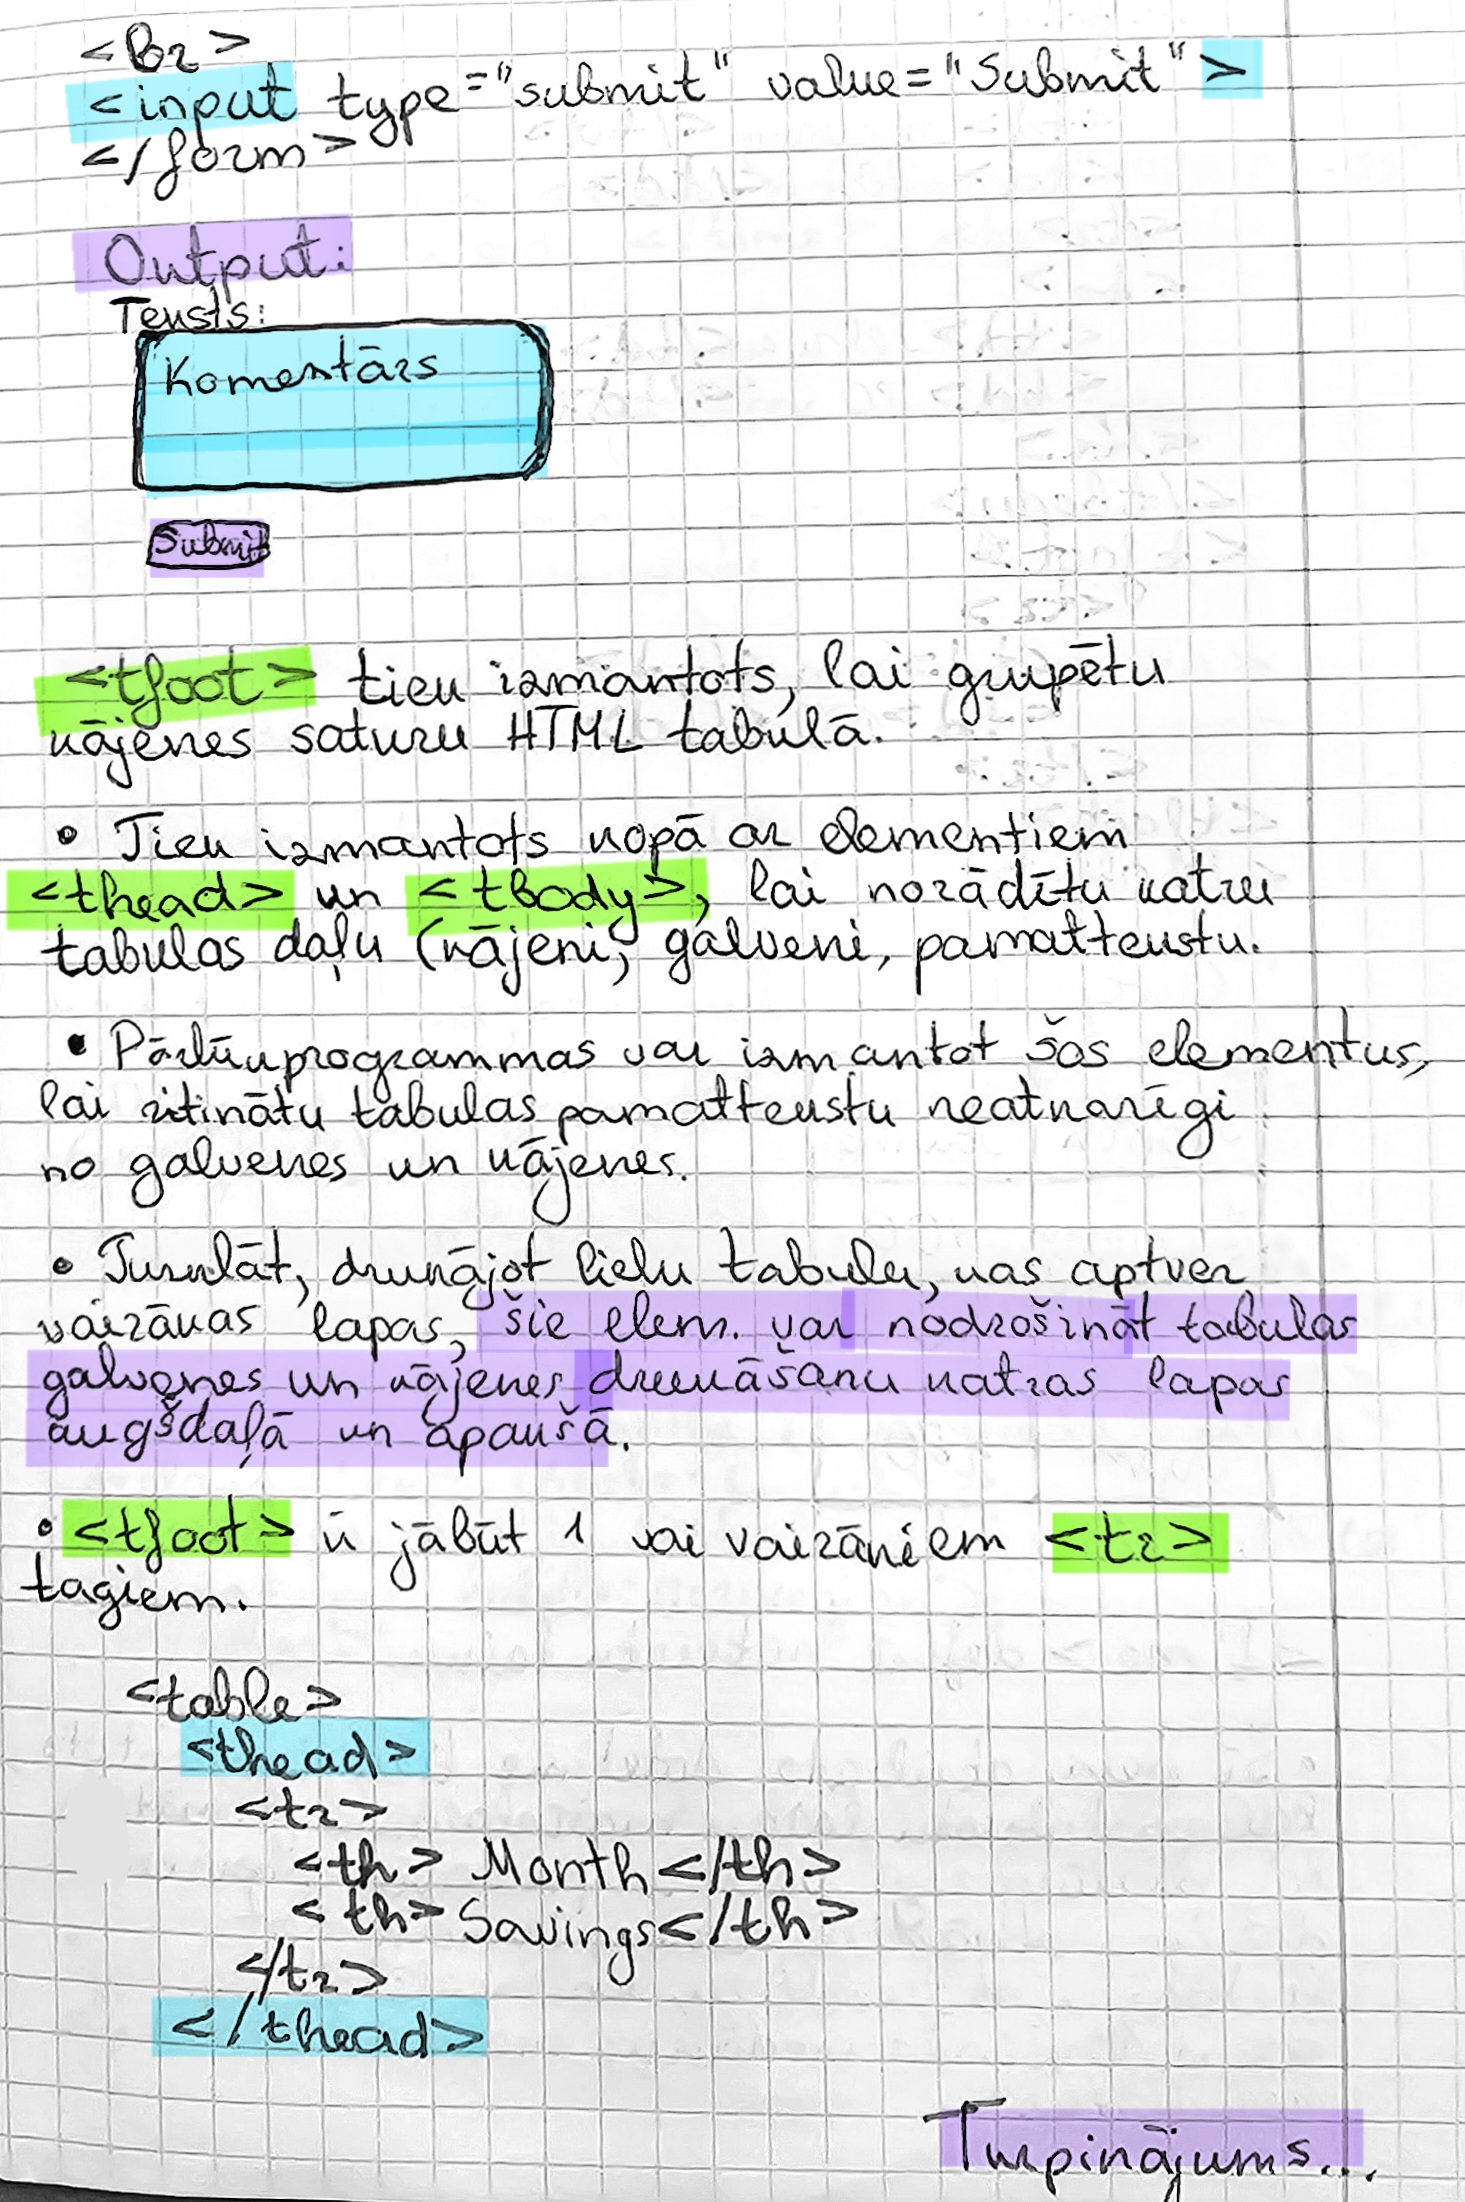 <br>
<input type="submit" value="Submit">
</form>
Output:
Teksts:
Komentārs
Submit
<tfoot> tiek izmantots, lai grupētu
kājenes saturu HTML tabulā.
• Tiek izmantots kopā ar elementiem
<thead> un <tbody>, lai norādītu katru
tabulas daļu (kājeni, galveni, pamattekstu.
• Pārlūkprogrammas var izmantot šos elementus,
lai ritinātu tabulas pamattekstu neatkarīgi
no galvenes un kājenes.
• Turklāt, drukājot lielu tabulu, kas aptver
vairākas lapas, šie elem. var nodrošināt tabulas
galvenes un kājenes drukāšanu katras lapas
augšdaļā un apakšā.
• <tfoot> ir jābūt 1 vai vairākiem <tr>
tagiem.
<table>
<thead>
<tr>
<th> Month </th>
<th> Savings </th>
</tr>
</thead>
Turpinājums...